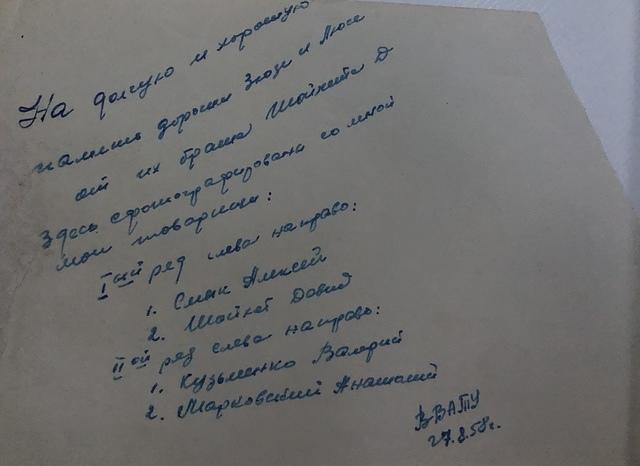 На долгую и хорошую
память дорогим Зюзи и Люсе
от их брата Шойхета Д
Здесь сфотографированы со мной
мои товарищи:
Iый ряд слева направо:
1. Смык Алексей
2. Шойхет Давид
IIой ряд слева направо:
1. Кузьменко Валерий
2. Марковский Анатолий
ВВАТУ
27.8.58г.